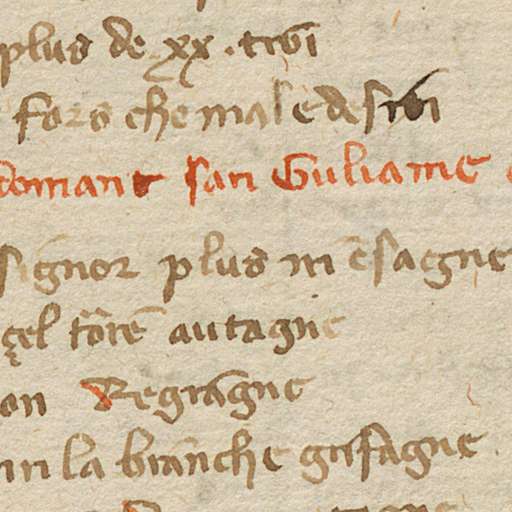 plus de xx. trõi
fors che mal e de
comant san Guliame
signor plus m ẽsagne
çel tõrẽ autagne
on Regrãgne
la brãnche grifagne